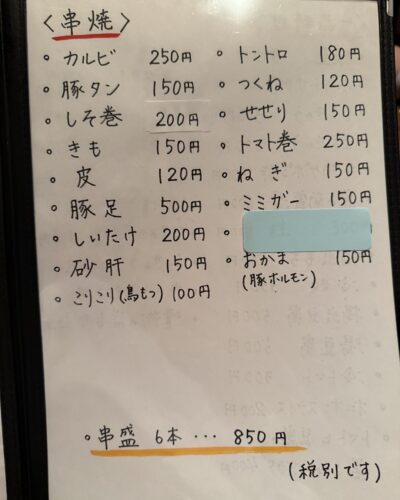 〈串焼〉
・カルビ 250円
・豚タン 150円
・しそ巻 200円
・きも 150円
・皮 120円
・豚足 500円
・しいたけ 200円
・砂肝 150円
・こりこり(鳥もつ) 100円
・トントロ 180円
・つくね 120円
・せせり 150円
・トマト巻 250円
・ねぎ 150円
・ミミガー 150円
・
・おかま 150円
(豚ホルモン)
・串盛 6本 … 850円
(税別です)